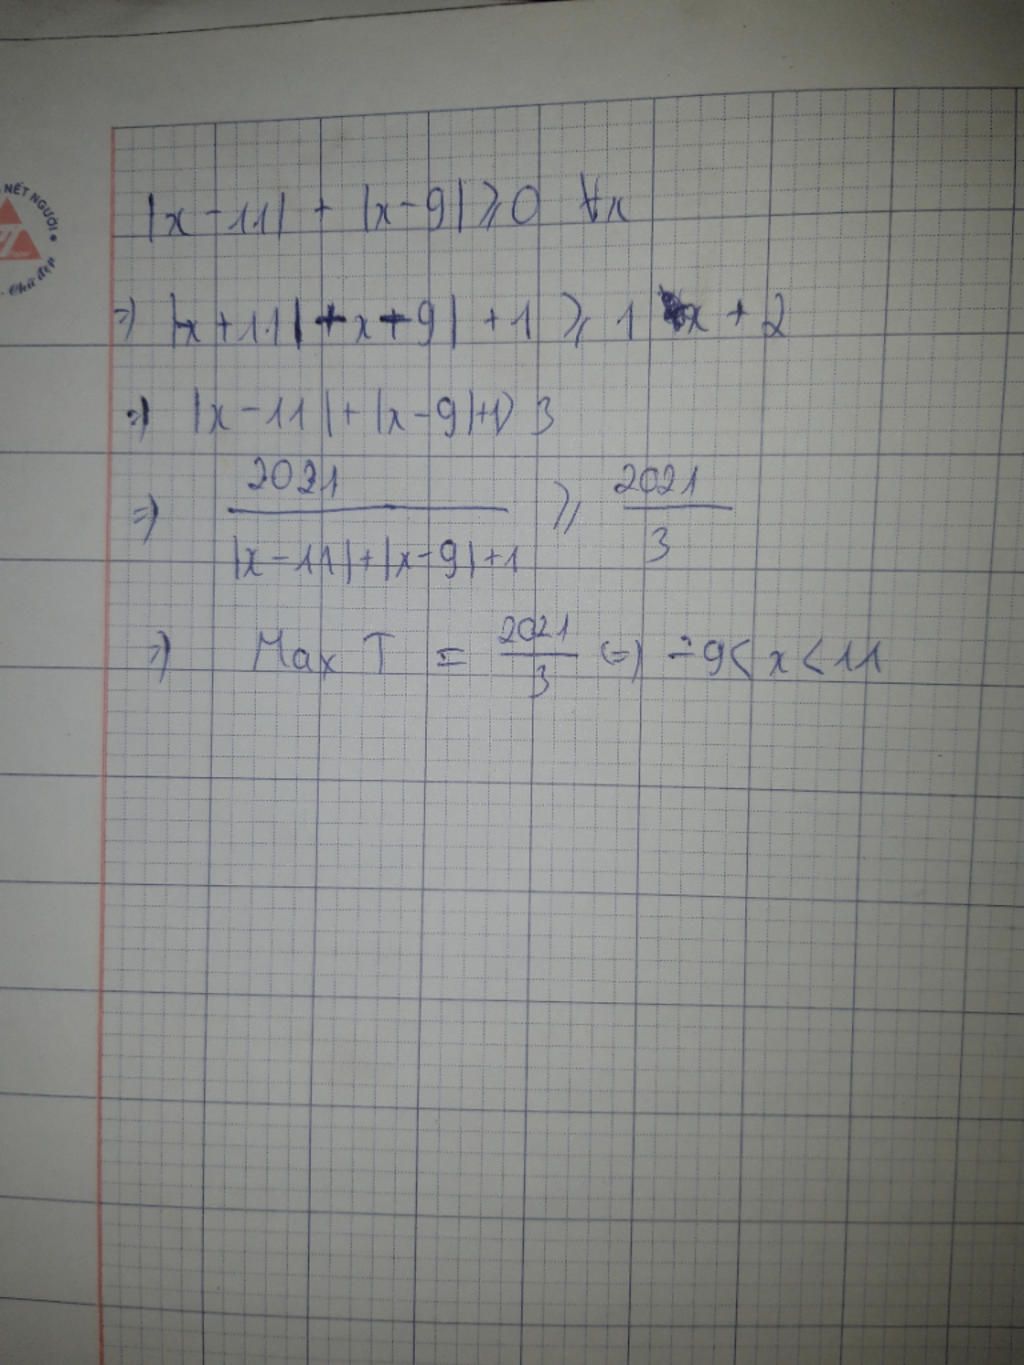 NẾT NGƯỜI
Chữ đẹp
|x - 11| + |x - 9| ⩾ 0 ∀x
=) |-x + 11| + x + 9| + 1 ⩾ 1 x + 2
=) |x - 11| + |x - 9| + 1 ⟩ 3
=) 2021 / |x - 11| + |x - 9| + 1 ⩾ 2021 / 3
=) Max T = 2021 / 3 (=) -9 < x < 11